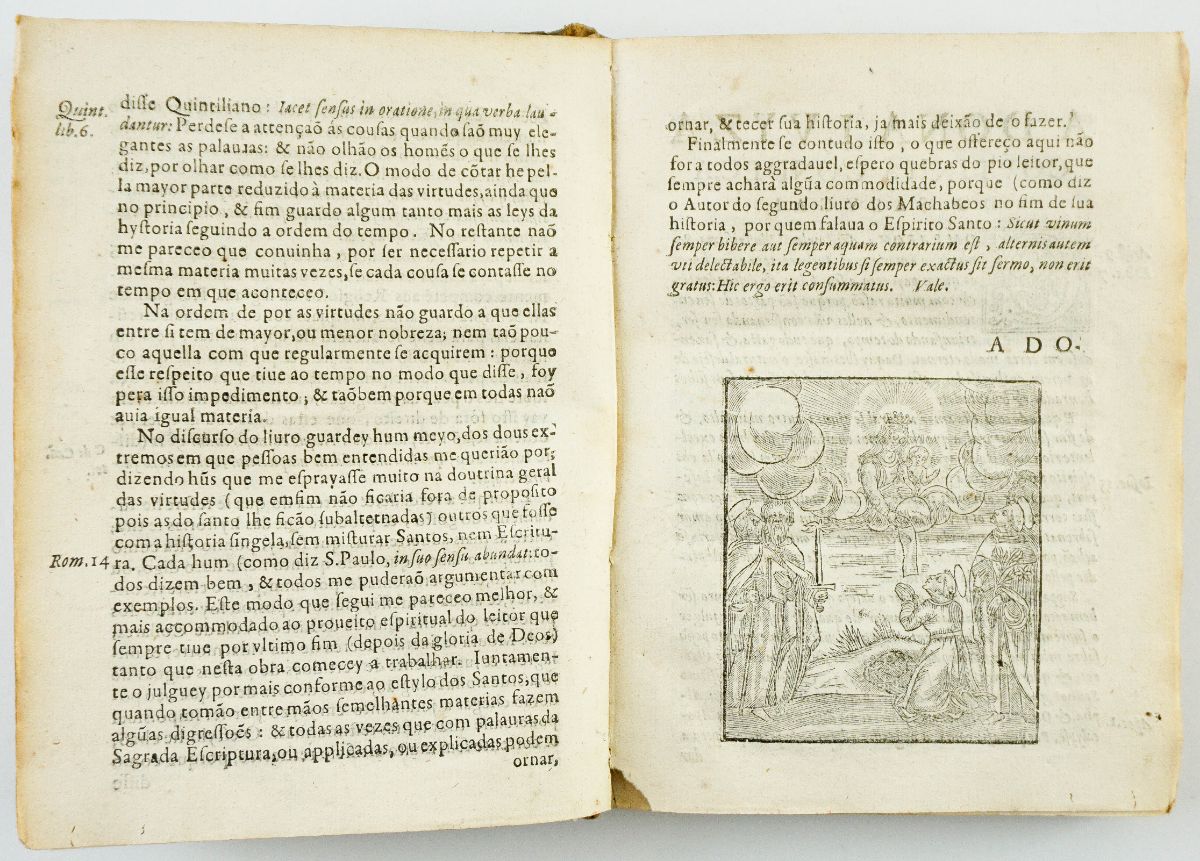 Quint.
lib.6.
disse Quintiliano: Iacet sensus in oratione, in qua verba lau-
dantur: Perdese a attençaõ ás cousas quando saõ muy ele-
gantes as palauras: & não olhão os homẽs o que se lhes
diz, por olhar como se lhes diz. O modo de cõtar he pel-
la mayor parte reduzido à materia das virtudes, ainda que
no principio, & fim guardo algum tanto mais as leys da
hystoria seguindo a ordem do tempo. No restante naõ
me pareceo que conuinha, por ser necessario repetir a
mesma materia muitas vezes, se cada cousa se contasse no
tempo em que aconteceo.
Na ordem de por as virtudes não guardo a que ellas
entre si tem de mayor, ou menor nobreza; nem taõ pou-
co aquella com que regularmente se acquirem: porque
esse respeito que tiue ao tempo no modo que disse, foy
pera isso impedimento, & taõbem porque em todas naõ
auia igual materia.
No discurso do liuro guardey hum meyo, dos dous ex-
tremos em que pessoas bem entendidas me querião por;
dizendo hũs que me esprayasse muito na doutrina geral
das virtudes (que emfim não ficaria fora de proposito
pois as do santo lhe ficão subalternadas) outros que fosse
com a historia singela, sem misturar Santos, nem Escritu-
Rom.14
ra. Cada hum (como diz S. Paulo, in suo sensu abundat: to-
dos dizem bem, & todos me puderaõ argumentar com
exemplos. Este modo que segui me pareceo melhor, &
mais accommodado ao proueito espiritual do leitor que
sempre tiue por vltimo fim (depois da gloria de Deos)
tanto que nesta obra comecey a trabalhar. Iuntamen-
te o julguey por mais conforme ao estylo dos Santos, que
quando tomão entre mãos semelhantes materias fazem
algũas digressoẽs: & todas as vezes que com palauras da
Sagrada Escriptura, ou applicadas, ou explicadas podem
ornar,
ornar, & tecer sua historia, ja mais deixão de o fazer.
Finalmente se contudo isto, o que offereço aqui não
for a todos aggradauel, espero quebras do pio leitor, que
sempre acharà algũa commodidade, porque (como diz
o Autor do segundo liuro dos Machabeos no fim de sua
historia, por quem falaua o Espirito Santo: Sicut vinum
semper bibere aut semper aquam contrarium est, alternis autem
vti delectabile, ita legentibus si semper exactus sit sermo, non erit
gratus: Hic ergo erit consummatus. Vale.
A D O.